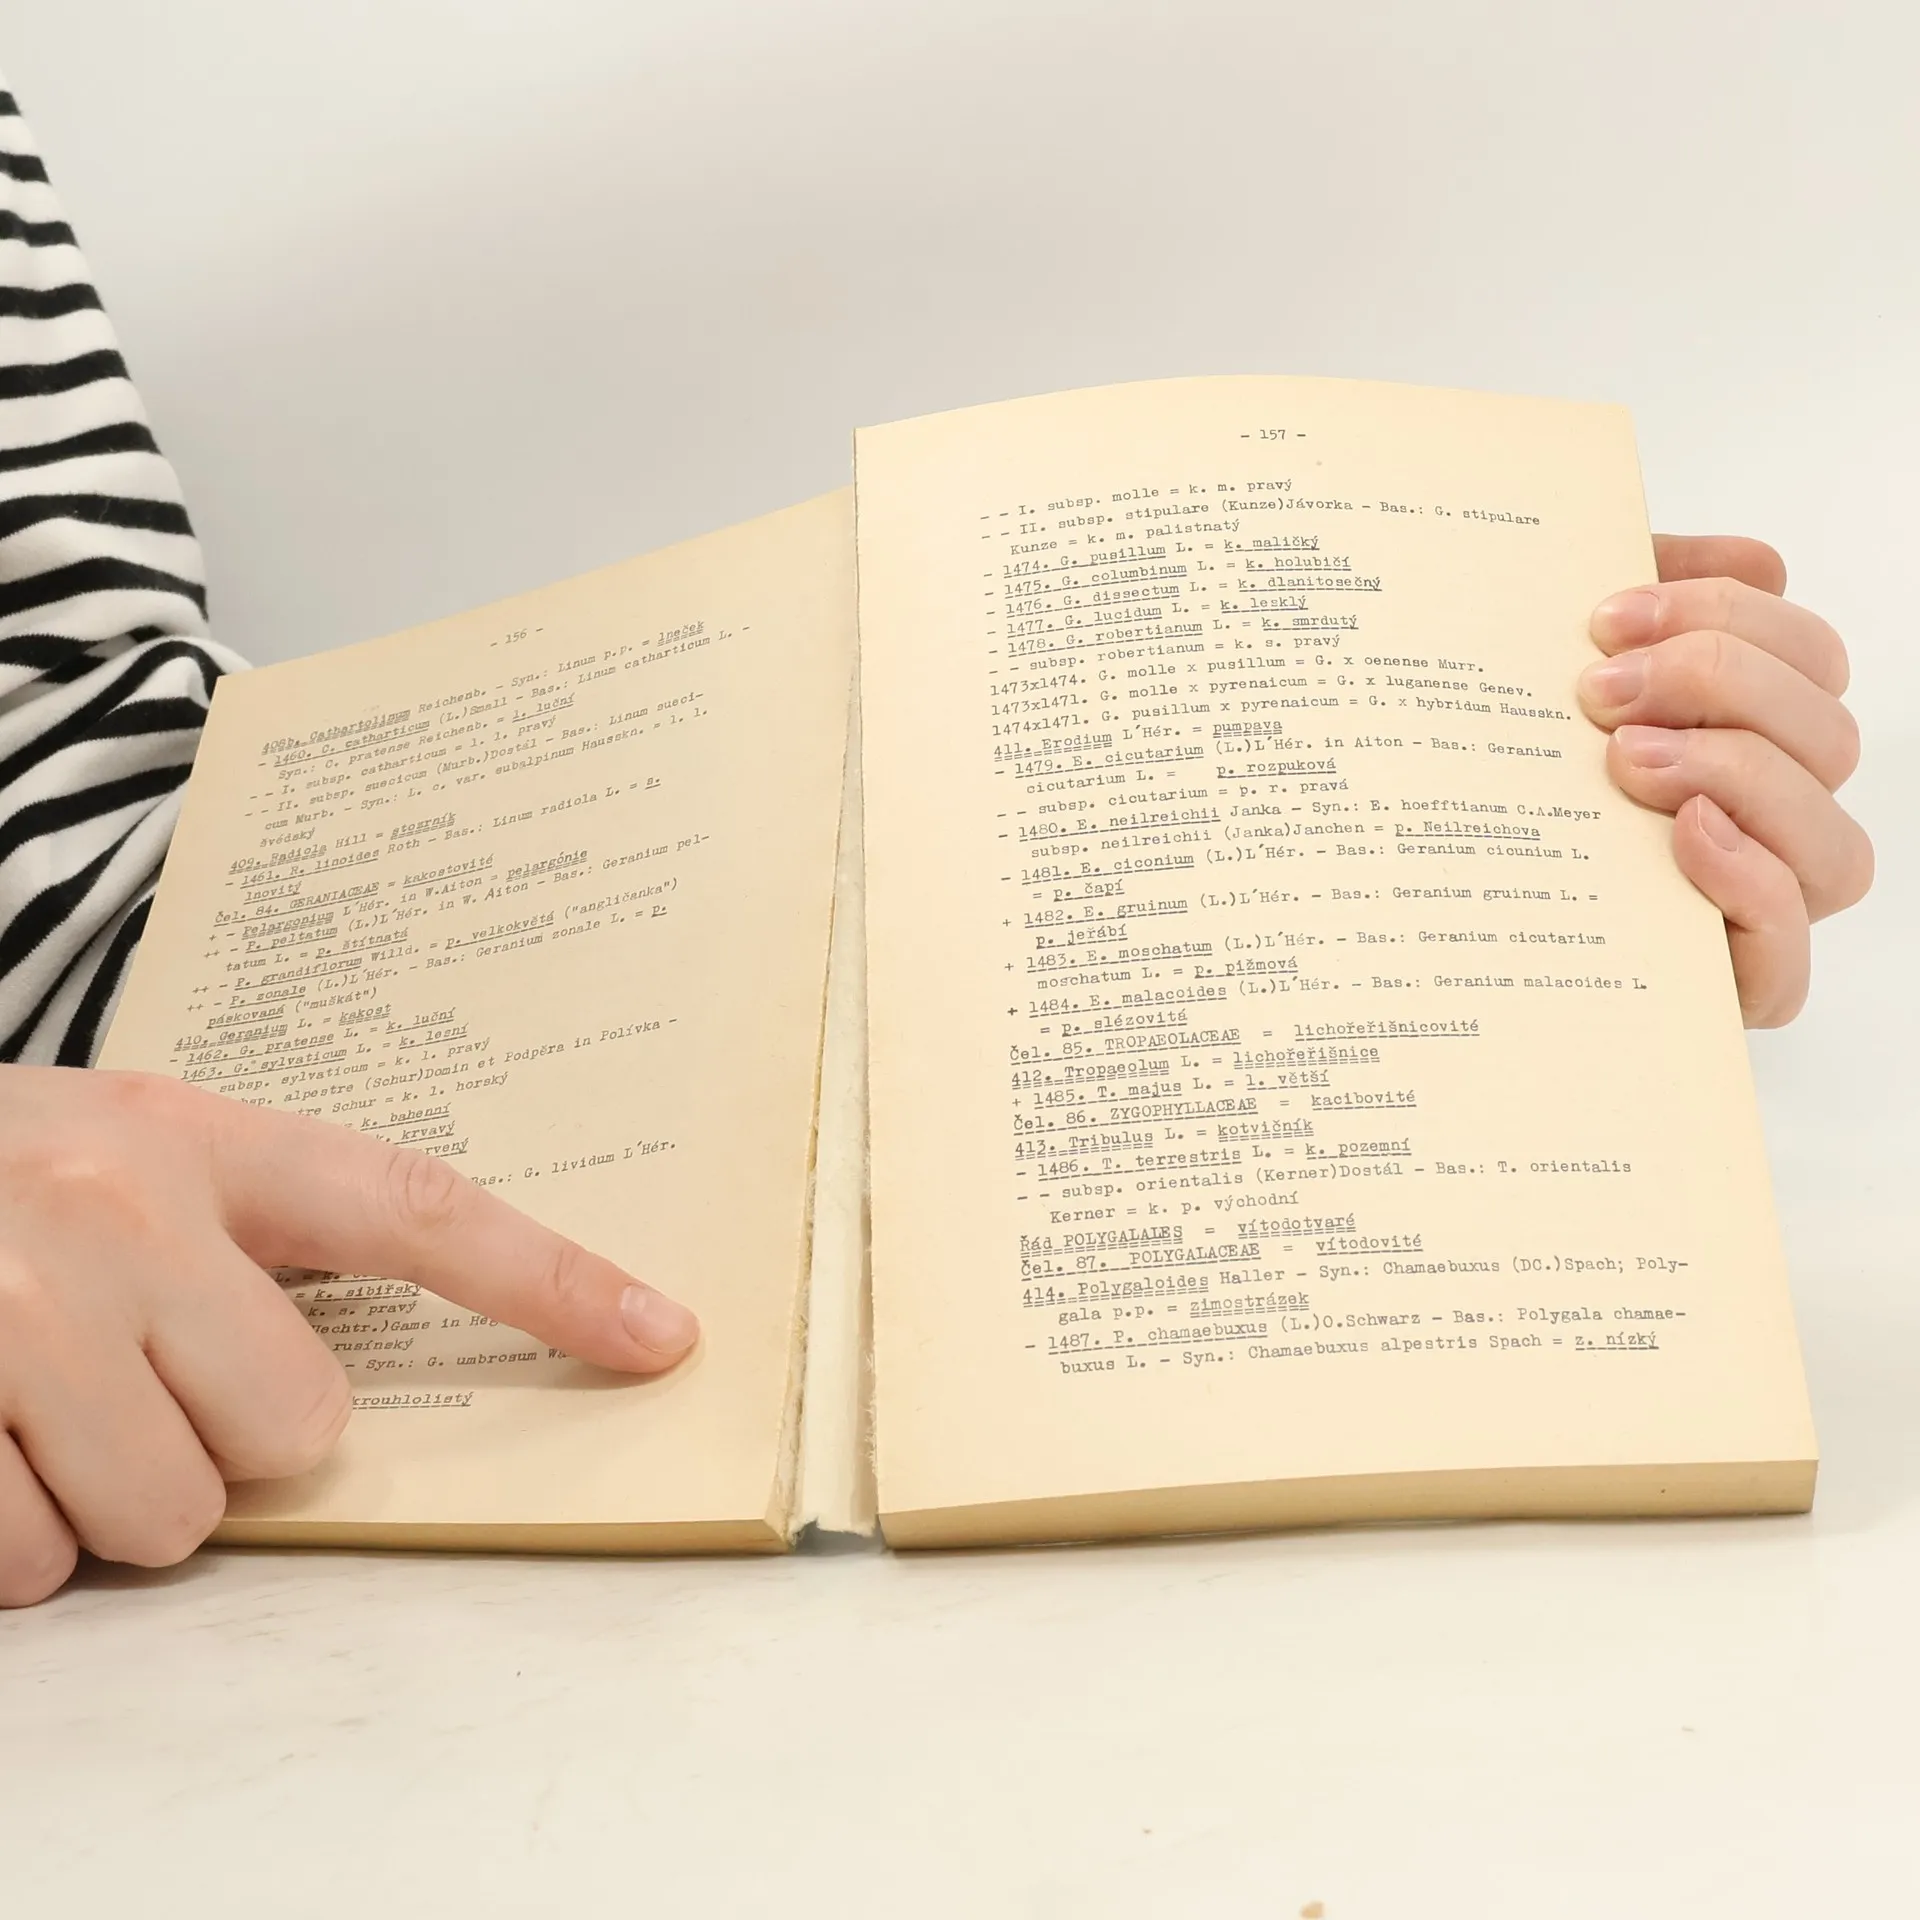 - 156 -
408b. Cathartolinum Reichenb. - Syn.: Linum p.p. = lneček
- 1460. C. catharticum (L.)Small - Bas.: Linum catharticum L. -
Syn.: C. pratense Reichenb. = l. luční
- - I. subsp. catharticum = l. l. pravý
- - II. subsp. suecicum (Murb.)Dostál - Bas.: Linum sueci-
cum Murb. - Syn.: L. c. var. subalpinum Hausskn. = l. l.
švédský
409. Radiola Hill = stozrník
- 1461. R. linoides Roth - Bas.: Linum radiola L. = s.
lnovitý
Čel. 84. GERANIACEAE = kakostovité
+ - Pelargonium L´Hér. in W.Aiton = pelargónie
++ - P. peltatum (L.)L´Hér. in W. Aiton - Bas.: Geranium pel-
tatum L. = p. štítnatá
++ - P. grandiflorum Willd. = p. velkokvětá ("angličanka")
++ - P. zonale (L.)L´Hér. - Bas.: Geranium zonale L. = p.
páskovaná ("muškát")
410. Geranium L. = kakost
- 1462. G. pratense L. = k. luční
1463. G. sylvaticum L. = k. lesní
subsp. sylvaticum = k. l. pravý
alpestre (Schur)Domin et Podpěra in Polívka -
Schur = k. l. horský
k. bahenní
k. krvavý
Bas.: G. lividum L´Hér.
L. = k.
= k. sibiřský
k. s. pravý
)Game in Heg
rusínský
- Syn.: G. umbrosum
krouhlolistý
- 157 -
- - I. subsp. molle = k. m. pravý
- - II. subsp. stipulare (Kunze)Jávorka - Bas.: G. stipulare
Kunze = k. m. palistnatý
- 1474. G. pusillum L. = k. maličký
- 1475. G. columbinum L. = k. holubičí
- 1476. G. dissectum L. = k. dlanitosečný
- 1477. G. lucidum L. = k. lesklý
- 1478. G. robertianum L. = k. smrdutý
- - subsp. robertianum = k. s. pravý
1473x1474. G. molle x pusillum = G. x oenense Murr.
1473x1471. G. molle x pyrenaicum = G. x luganense Genev.
1474x1471. G. pusillum x pyrenaicum = G. x hybridum Hausskn.
411. Erodium L´Hér. = pumpava
- 1479. E. cicutarium (L.)L´Hér. in Aiton - Bas.: Geranium
cicutarium L. = p. rozpuková
- - subsp. cicutarium = p. r. pravá
- 1480. E. neilreichii Janka - Syn.: E. hoefftianum C.A.Meyer
subsp. neilreichii (Janka)Janchen = p. Neilreichova
- 1481. E. ciconium (L.)L´Hér. - Bas.: Geranium cicunium L.
= p. čapí
+ 1482. E. gruinum (L.)L´Hér. - Bas.: Geranium gruinum L. =
p. jeřábí
+ 1483. E. moschatum (L.)L´Hér. - Bas.: Geranium cicutarium
moschatum L. = p. pižmová
+ 1484. E. malacoides (L.)L´Hér. - Bas.: Geranium malacoides L.
= p. slézovitá
Čel. 85. TROPAEOLACEAE = lichořeřišnicovité
412. Tropaeolum L. = lichořeřišnice
+ 1485. T. majus L. = l. větší
Čel. 86. ZYGOPHYLLACEAE = kacibovité
413. Tribulus L. = kotvičník
- 1486. T. terrestris L. = k. pozemní
- - subsp. orientalis (Kerner)Dostál - Bas.: T. orientalis
Kerner = k. p. východní
Řád POLYGALALES = vítodotvaré
Čel. 87. POLYGALACEAE = vítodovité
414. Polygaloides Haller - Syn.: Chamaebuxus (DC.)Spach; Poly-
gala p.p. = zimostrázek
- 1487. P. chamaebuxus (L.)O.Schwarz - Bas.: Polygala chamae-
buxus L. - Syn.: Chamaebuxus alpestris Spach = z. nízký